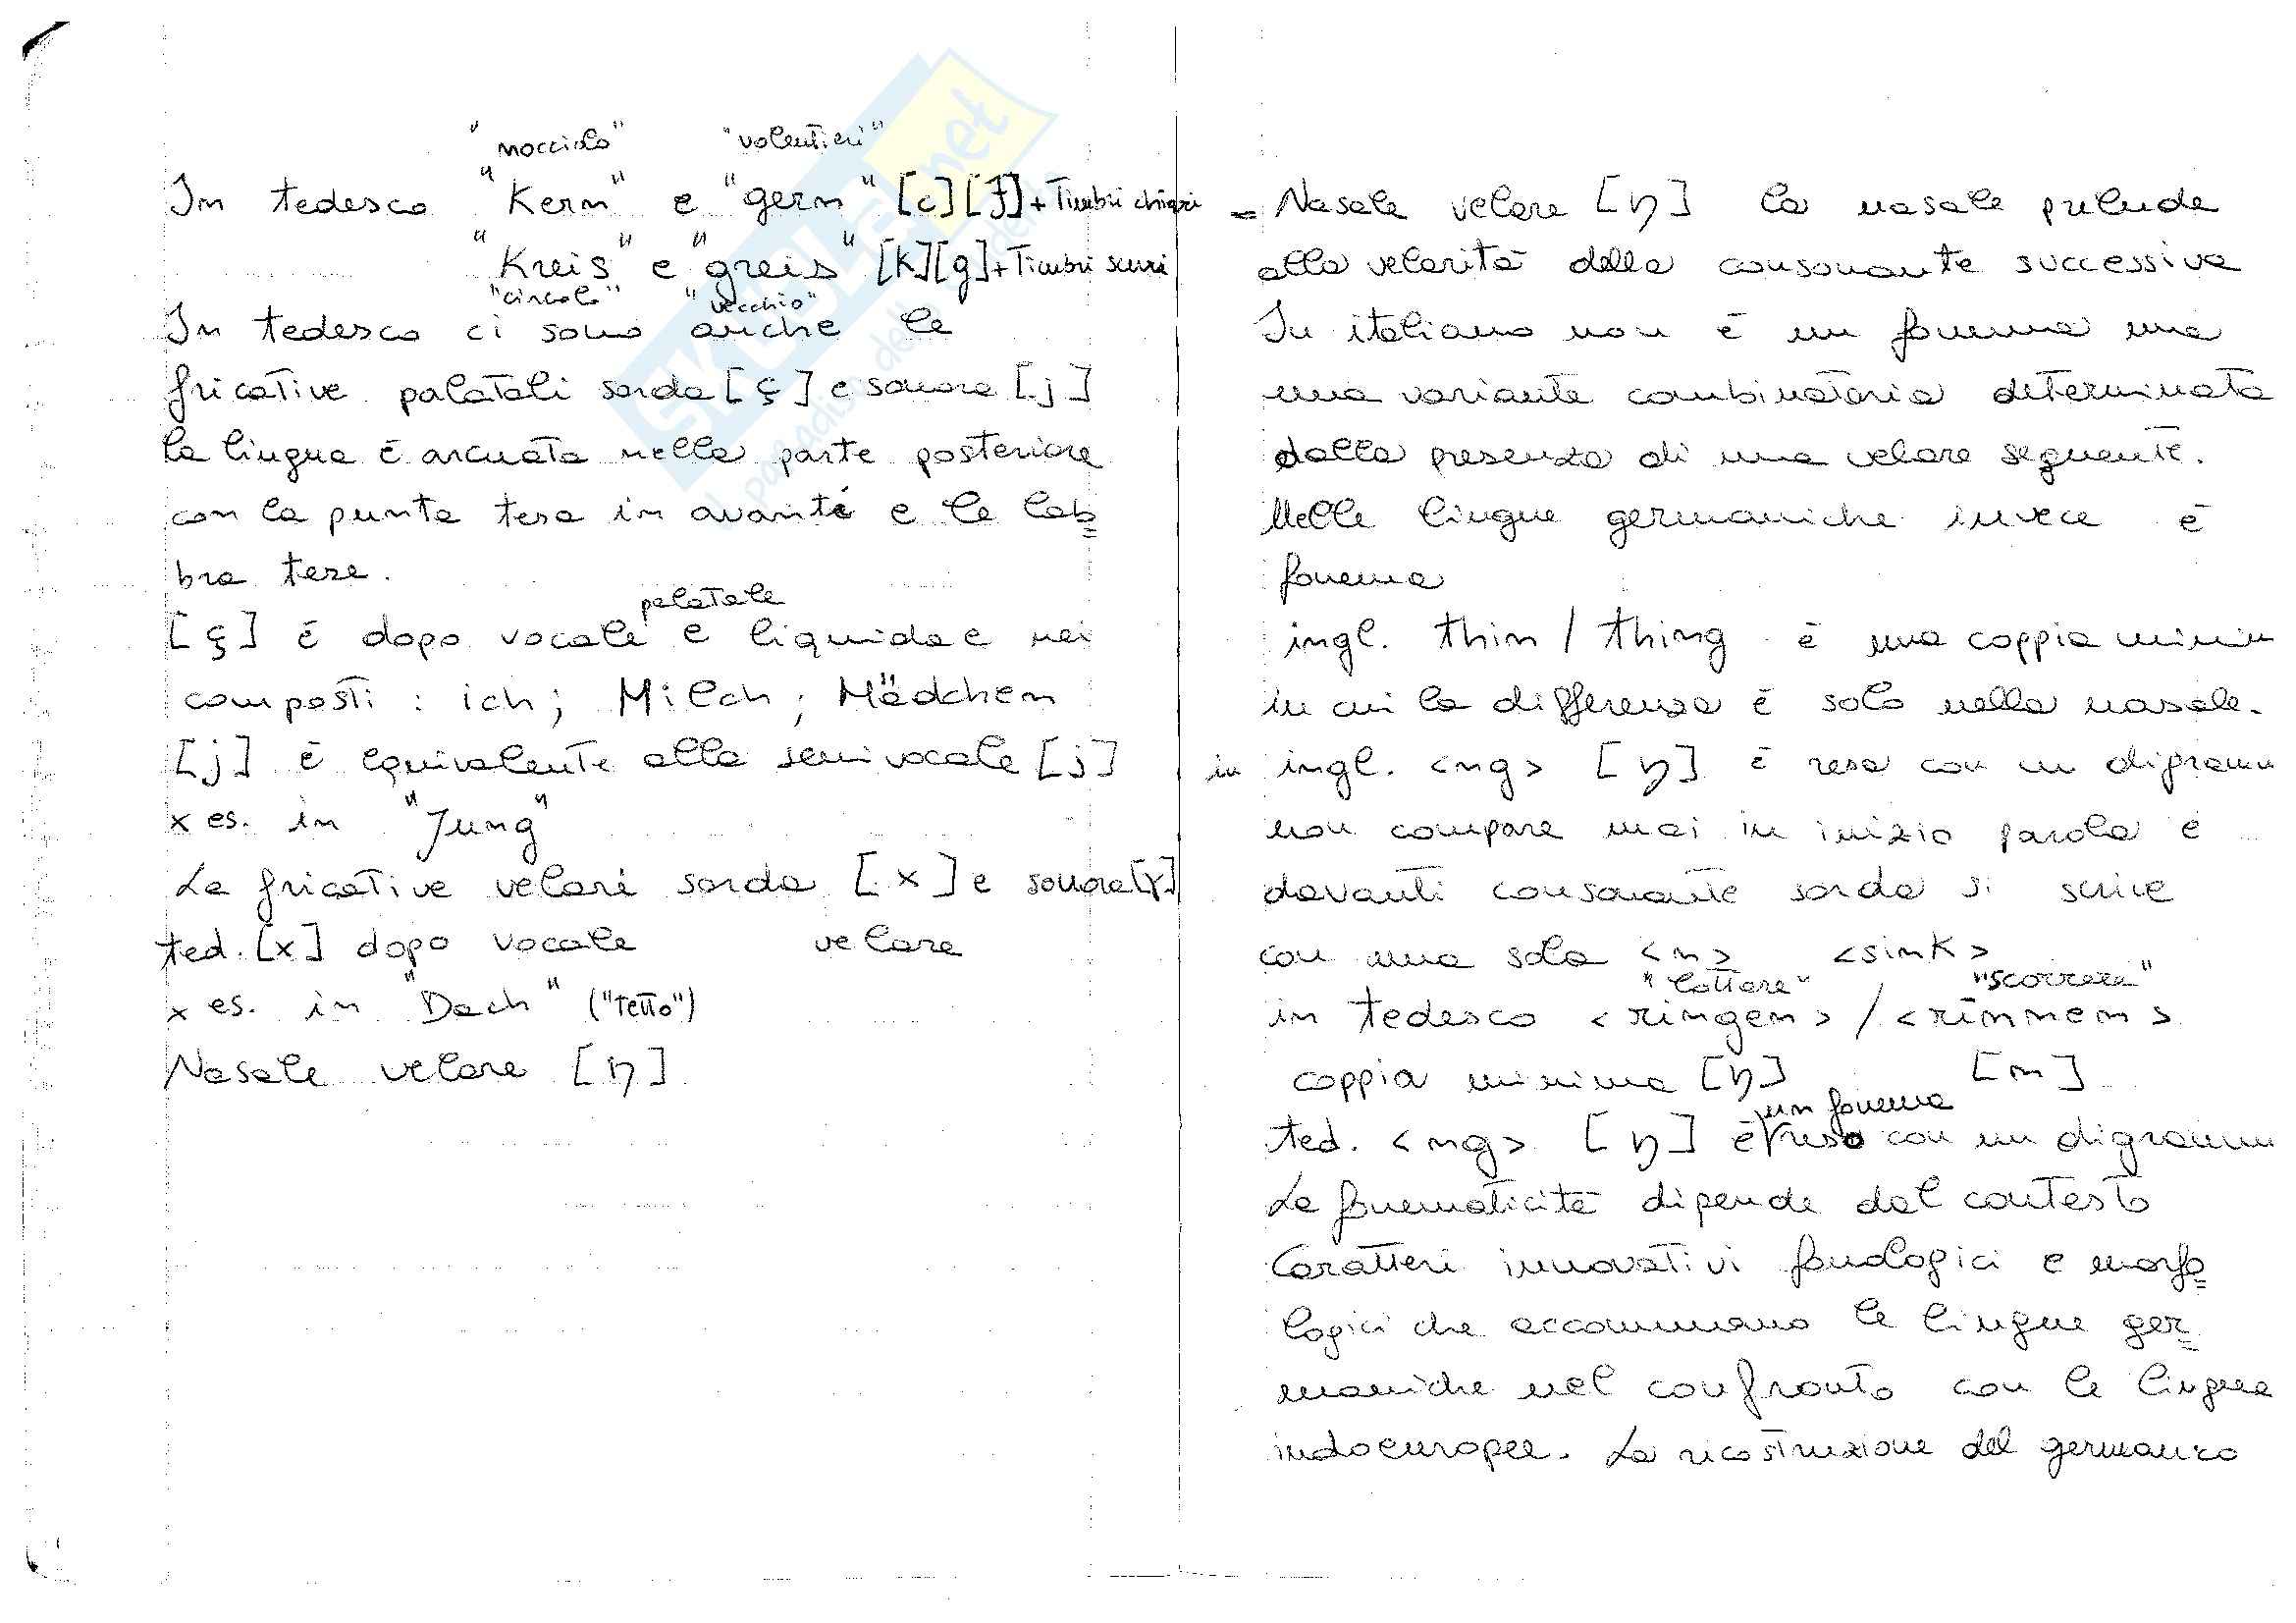 "nocciolo" "volentieri"
In tedesco "Kern" e "gern" [c][ɟ]+Timbri chiari
"Kreis" e "greis" [k][g]+Timbri scuri
"circolo" "vecchio"
In tedesco ci sono anche le
fricative palatali sorda [ç] e sonora [j]
la lingua è arcuata nella parte posteriore
con la punta tesa in avanti e le lab=
bra tese.
palatale
[ç] è dopo vocale e liquida e nei
composti: ich; Milch; Mädchen
[j] è equivalente alla semivocale [j]
x es. in "Jung"
Le fricative velari sorda [x] e sonora [ɣ]
ted. [x] dopo vocale velare
x es. in "Dach" ("tetto")
Nasale velare [ŋ]
= Nasale velare [ŋ] la nasale prelude
alla velarità della consonante successiva
In italiano non è un fonema ma
una variante combinatoria determinata
dalla presenza di una velare seguente.
Nelle lingue germaniche invece è
fonema
ingl. thin / thing è una coppia minim
in cui la differenza è solo nella nasale.
in ingl. <ng> [ŋ] è resa con un digramm
non compare mai in inizio parola e
davanti consonante sorda si scrive
con una sola <n> <sink>
"lottare" "scorrere"
in tedesco <ringen> / <rinnen>
coppia minima [ŋ] [n]
un fonema
ted. <ng> [ŋ] è reso con un digramm
La fonematicità dipende dal contesto
Caratteri innovativi fonologici e morfo=
logici che accomunano le lingue ger=
maniche nel confronto con le lingue
indoeuropee. La ricostruzione del germanico
SKUOLA.net
il paradiso dello